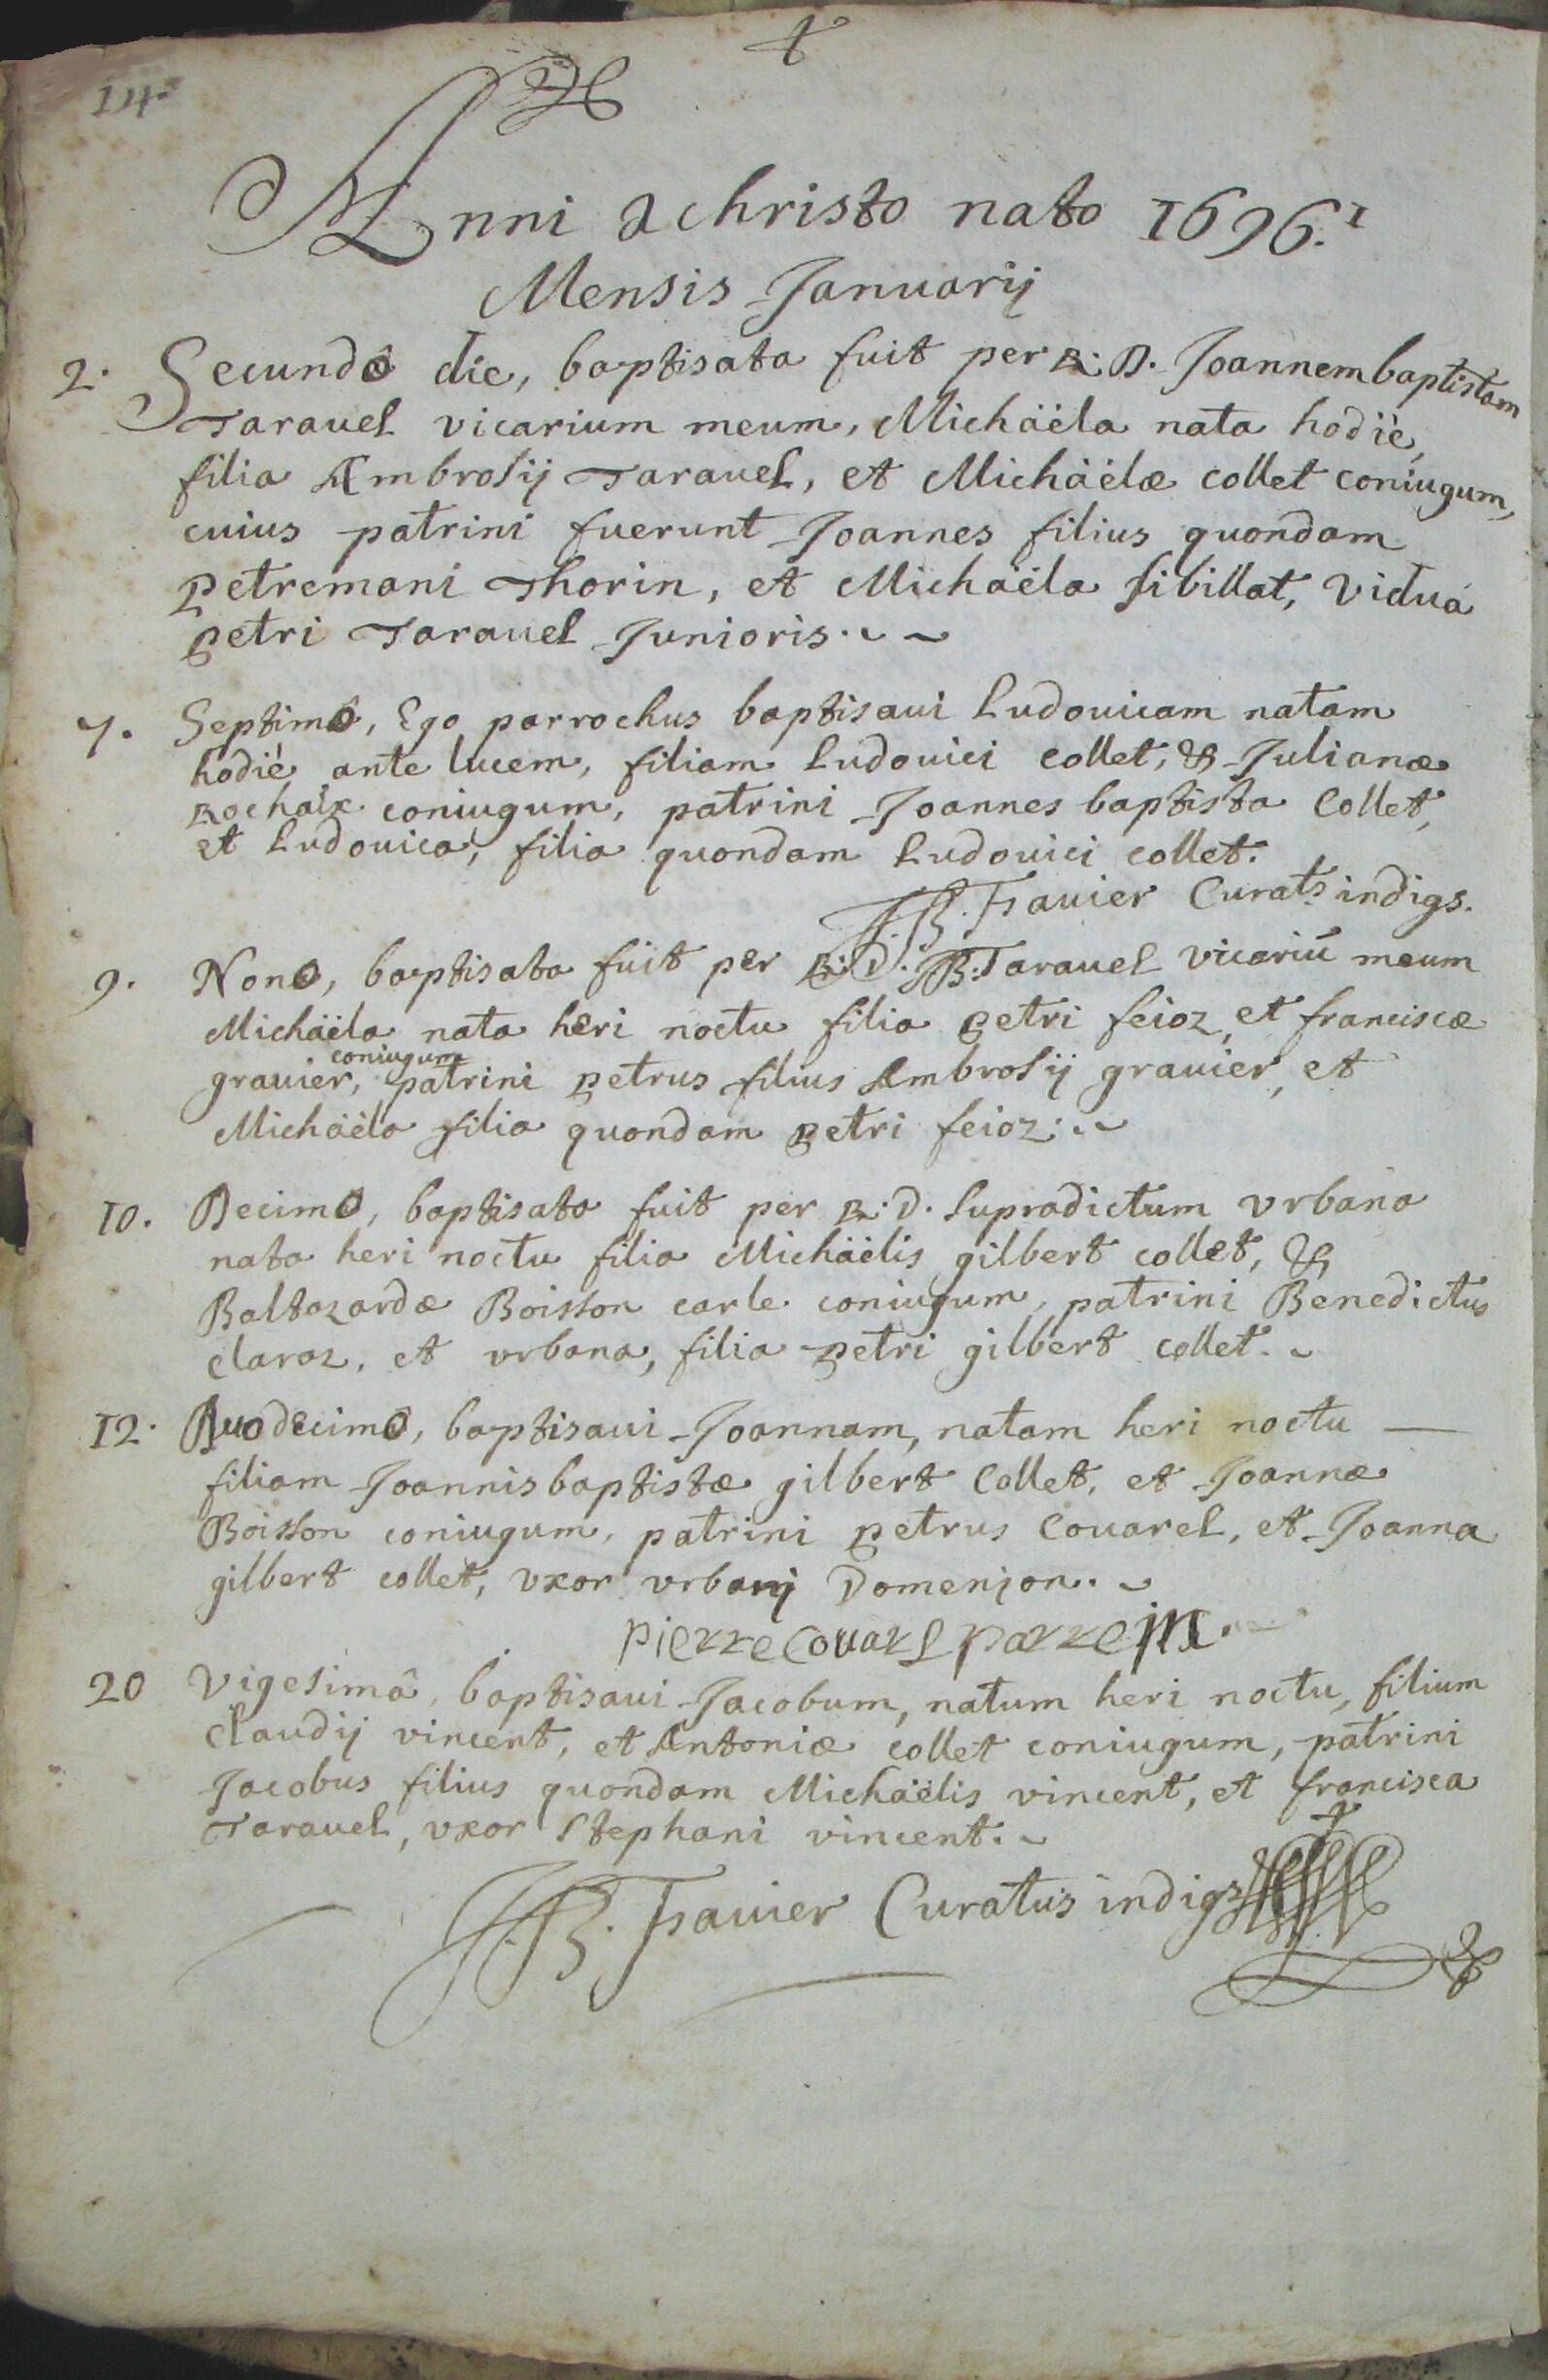 Anni a Christo nato 1696.
Mensis Januarij
2. Secundô die, baptisata fuit per R: D. Joannembaptistam
Tarauel vicarium meum, Michäéla nata hodiè,
filia Ambrosij Tarauel, et Michäélæ collet coniugum,
cuius patrini fuerunt Joannes filius quondam
petremani Thorin, et Michäéla sibillat, vidua
petri Tarauel Junioris.
7. Septimô, Ego parrochus baptisaui Ludouicam natam
hodiè ante lucem, filiam Ludouici collet, & Julianæ
Rochaix coniugum, patrini Joannes baptista Collet,
et Ludouica, filia quondam Ludouici collet.
J.B. Frauier Curats indigs.
9. Nono, baptisata fuit per R: D. JB: Tarauel vicariū meum
Michäéla nata heri noctu filia petri feioz, et franciscæ
coniugum
grauier, patrini petrus filius Ambrosij grauier, et
Michäéla filia quondam petri feioz.
10. Decimo, baptisata fuit per R: D. supradictum vrbana
nata heri noctu filia Michäélis gilbert collet, &
Baltazardæ Boisson carle coniugum, patrini Benedictus
claraz, et vrbana, filia petri gilbert collet.
12. Duodecimô, baptisaui Joannam, natam heri noctu
filiam Joannisbaptistæ gilbert Collet, et Joannæ
Boisson coniugum, patrini petrus Couarel, et Joanna
gilbert collet, vxor vrbanj Domenjon.
pierre Couarl parrein.
20 Vigesimâ, baptisaui Jacobum, natum heri noctu, filium
Claudij vincent, et Antoniæ collet coniugum, patrini
Jacobus filius quondam Michäélis vincent, et francisca
Tarauel, vxor Stephani vincent.
J.B. Frauier Curatus indigs